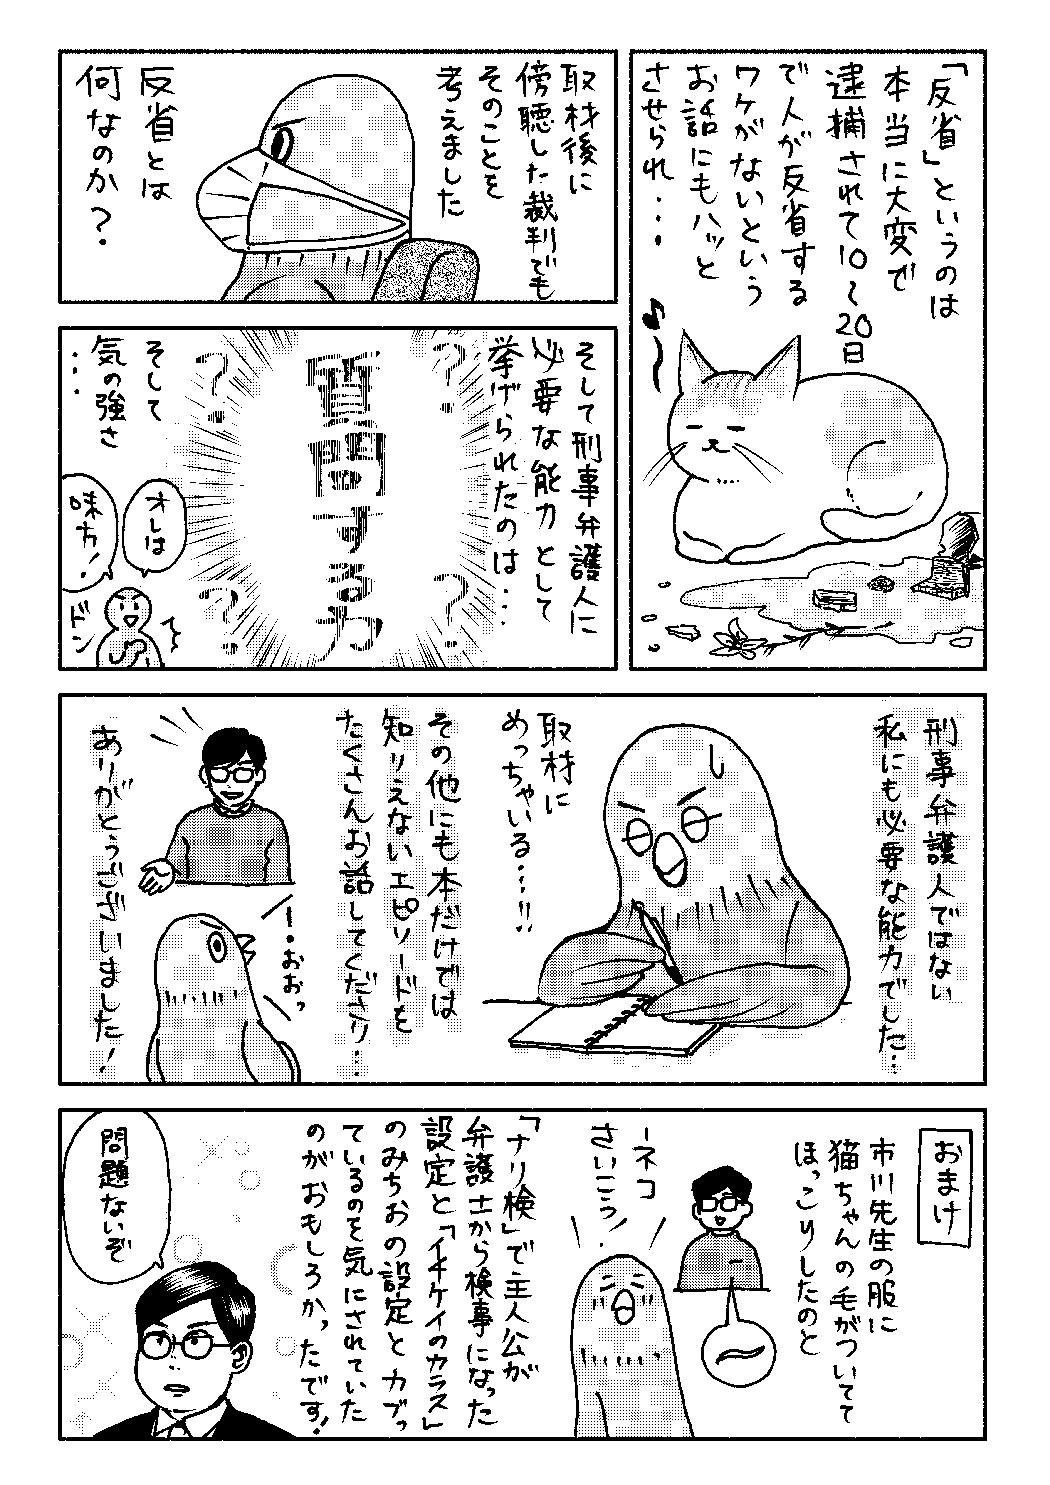 「反省」というのは
本当に大変で
逮捕されて10〜20日
で人が反省する
ワケがないという
お話にもハッと
させられ・・・
取材後に
傍聴した裁判でも
そのことを
考えました
反省とは
何なのか？
そして刑事弁護人に
必要な能力として
挙げられたのは・・・
？
？
質問する力
？
？
そして
気の強さ
・・・
オレは
味方！
ドン
刑事弁護人ではない
私にも必要な能力でした・・
取材に
めっちゃいる・・・!!
その他にも本だけでは
知りえないエピソードを
たくさんお話してくださり・・・
ありがとうございました！
おおっ
おまけ
市川先生の服に
猫ちゃんの毛がついてて
ほっこりしたのと
ネコ
さいこう
「ナリ検」で主人公が
弁護士から検事になった
設定と「イチケイのカラス」
のみちおの設定とカブっ
ているのを気にされていた
のがおもしろかったです！
問題ないぞ